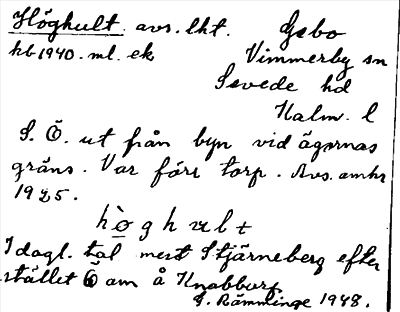 Höghult. avs. lht. Gebo
hb 1940. ml. ek Vimmerby sn
Sevede hd
Kalm. l
S. Ö. ut från byn vid ägornas
gräns. Var förr torp. Avs. omkr
1925.
hø̀ghult
I dagl. tal mest Stjärneberg efter
stället Ö om å Knabbarp
S. Rämminge 1948.